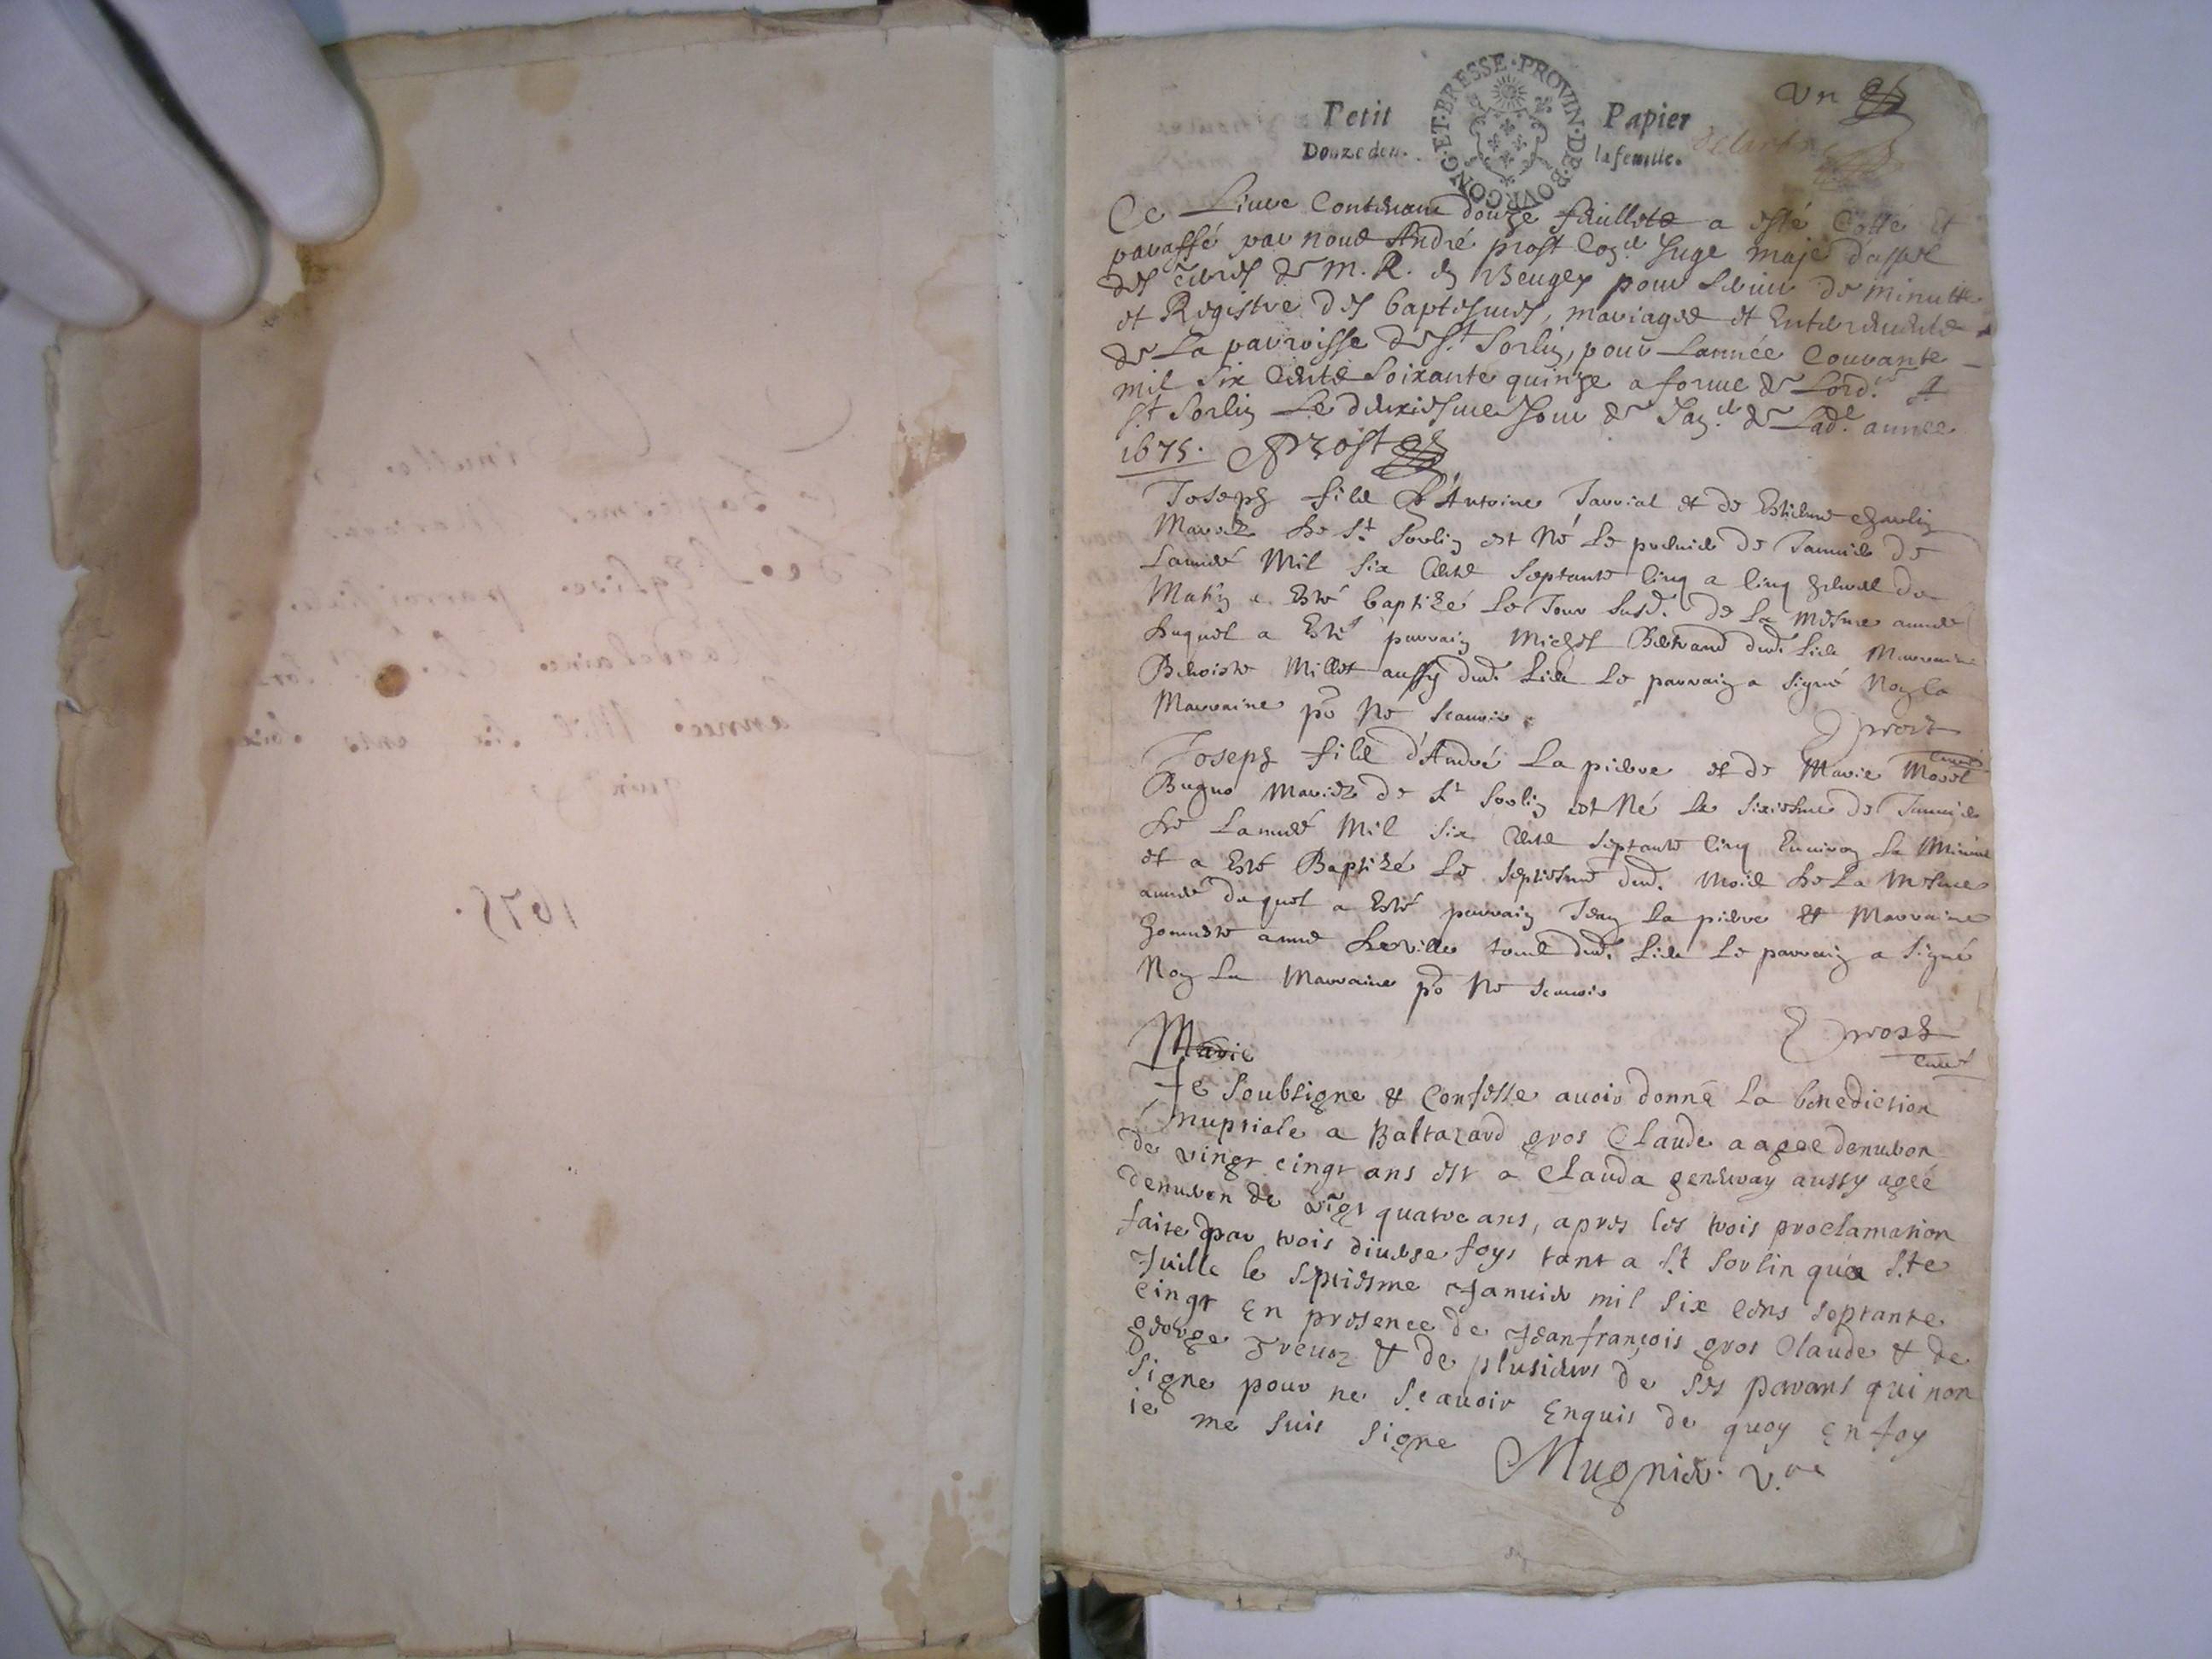 1675.
Un
Petit Papier
Douze den. la feuille.
BOVRGONG·ET·BRESSE·PROVIN·DE
Ce Liure Contenant douze feuillets a esté Cotté Et
paraffé par nous André prost Con.er Juge maje d'appel
des terres de M. R. en Beugey pour Seruir de minutte
et Registre des baptesmes, mariages et Enterrements
de La parroisse de St Sorlin, pour Lannée Courante
mil Six Cents Soixante quinze a forme de Lord.ce A
St Sorlin Le deuxiesme Jour de Jan.er de Lad.e année
1675. Prost
Joseph fils d'Antoine Jarrial et de Estienne Charlin
Mariez de St Sorlin est Né Le premier de Januier de
Lannée Mil Six Cents Septante Cinq a Cinq heures du
Matin a Esté baptizé Le Jour Susd. de La Mesme année
Duquel a Esté parrain Michel Bertrand dud. Lieu Marraine
Benoiste Millet aussy dud. Lieu Le parrain a Signé Non la
Marraine po Ne Scauoir.
Prost
Curé
Joseph fils d'André La pierre et de Marie Morel
Bugno Mariez de St Sorlin est Né Le Sixiesme de Januier
de Lannée Mil Six Cents Septante Cinq Enuiron La Minuit
et a Esté Baptizé Le Septiesme dud. Mois de La Mesme
année Duquel a Esté parrain Jean La pierre Et Marraine
honneste anne Deville tous dud. Lieu Le parrain a Signé
Non La Marraine po Ne Scauoir
Prost
Curé
Marie
Je Soubsigne & Confesse auoir donné La benediction
nuptiale a Baltazard gros Claude aagee denuiron
de vingt cingt ans est a Clauda genevay aussy agée
denuiron de vigt quatre ans, apres les trois proclamation
faite par trois diuerse foys tant a St Sorlin qu'a Ste
Juille le Septiesme Januier mil Six Cens Septante
Cingt En presence de Jeanfrançois gros Claude & de
george Treuoz & de plusieurs de Ses parans qui non
Signe pour ne Scauoir Enquis de quoy En foy
ie me Suis Signe Mugnier v.re